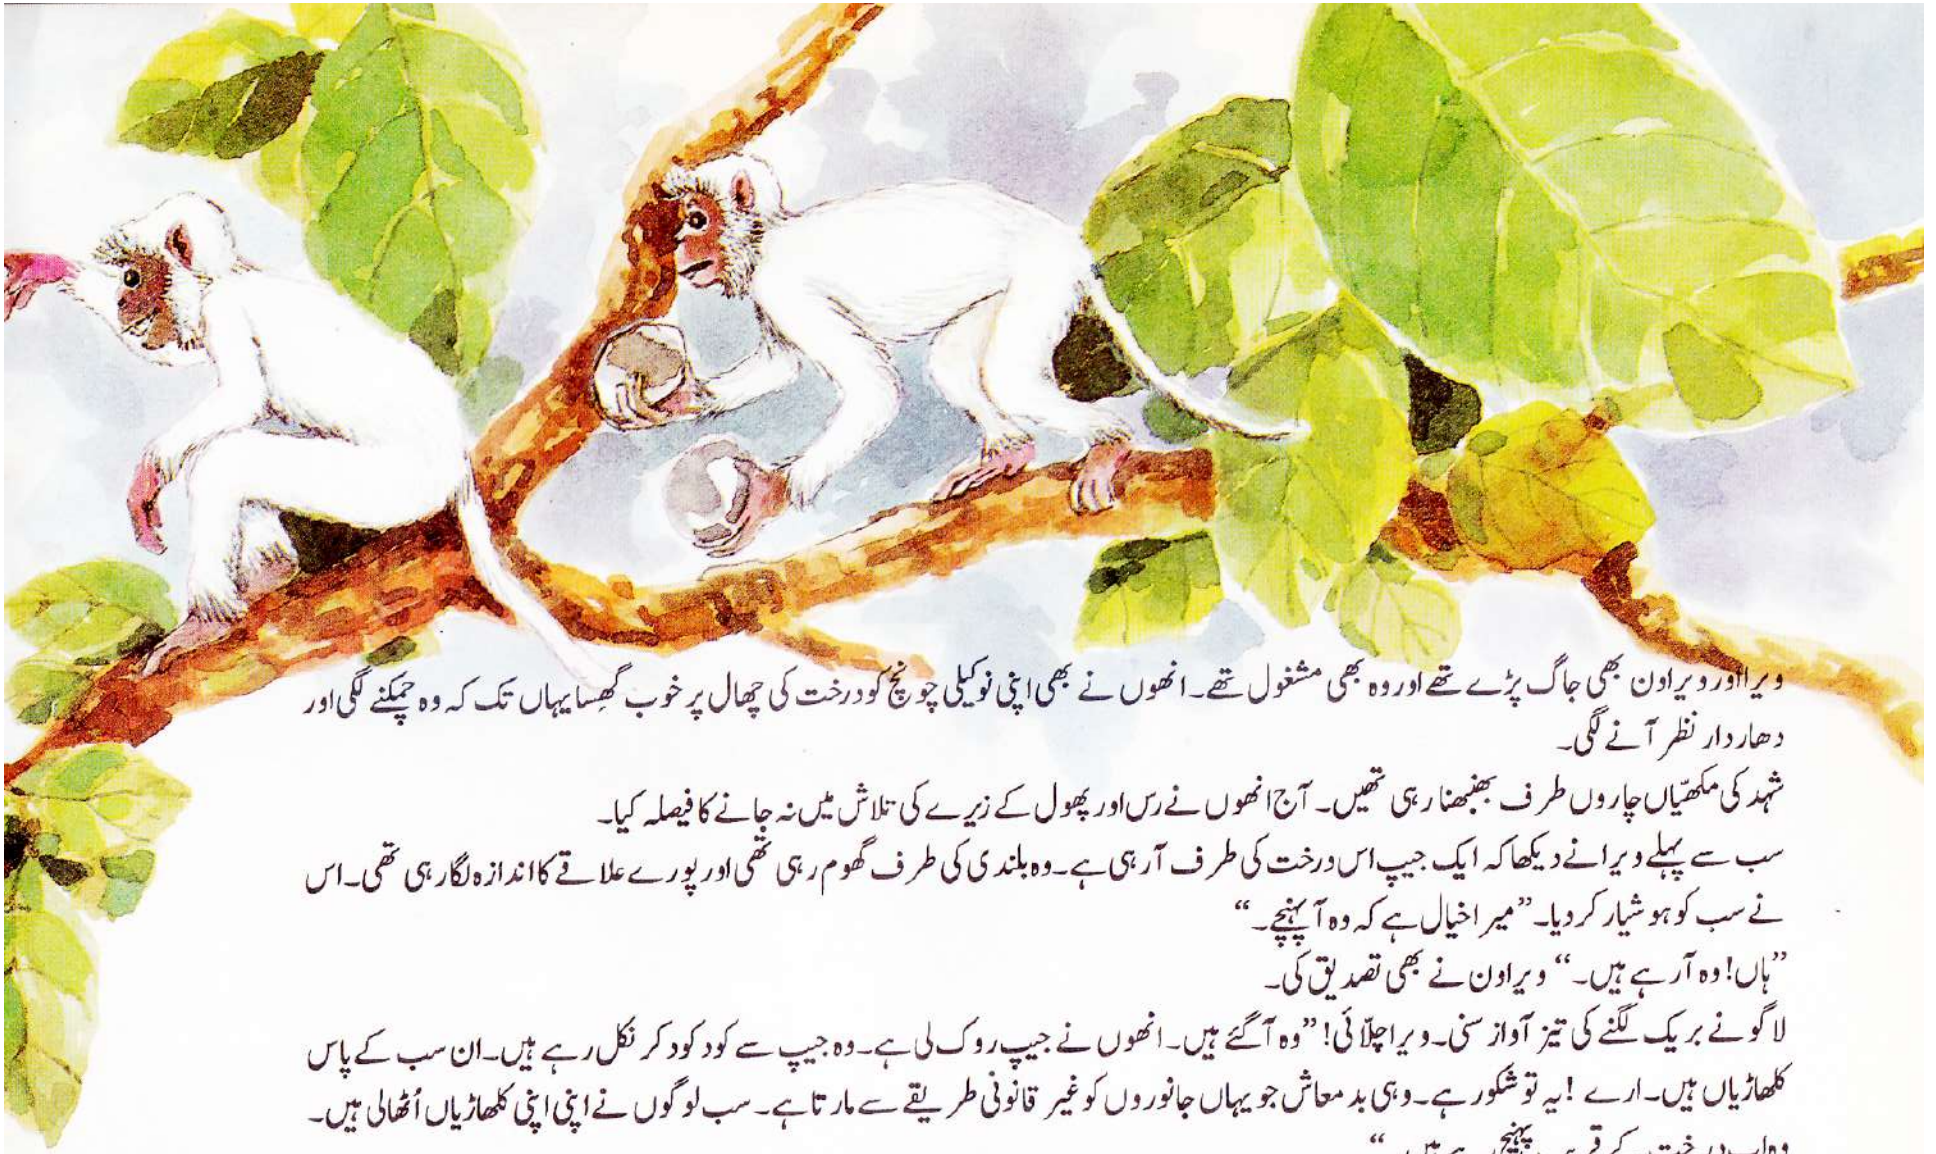 ویرااور ویراون بھی جاگ پڑے تھے اور وہ بھی مشغول تھے۔ انھوں نے بھی اپنی نوکیلی چونچ کو درخت کی چھال پر خوب گھِسا یہاں تک کہ وہ چمکنے لگی اور
دھار دار نظر آنے لگی۔
شہد کی مکھیّاں چاروں طرف بھنبھنا رہی تھیں۔ آج انھوں نے رس اور پھول کے زیرے کی تلاش میں نہ جانے کا فیصلہ کیا۔
سب سے پہلے ویرانے دیکھا کہ ایک جیپ اس درخت کی طرف آرہی ہے۔ وہ بلندی کی طرف گھوم رہی تھی اور پورے علاقے کا اندازہ لگا رہی تھی۔ اس
نے سب کو ہوشیار کر دیا۔ ”میرا خیال ہے کہ وہ آپہنچے۔“
”ہاں! وہ آرہے ہیں۔“ ویراون نے بھی تصدیق کی۔
لاگو نے بریک لگنے کی تیز آواز سنی۔ ویرا چلّائی! ”وہ آگئے ہیں۔ انھوں نے جیپ روک لی ہے۔ وہ جیپ سے کود کود کر نکل رہے ہیں۔ ان سب کے پاس
کلھاڑیاں ہیں۔ ارے! یہ تو شکور ہے۔ وہی بدمعاش جو یہاں جانوروں کو غیر قانونی طریقے سے مارتا ہے۔ سب لوگوں نے اپنی اپنی کلھاڑیاں اُٹھالی ہیں۔